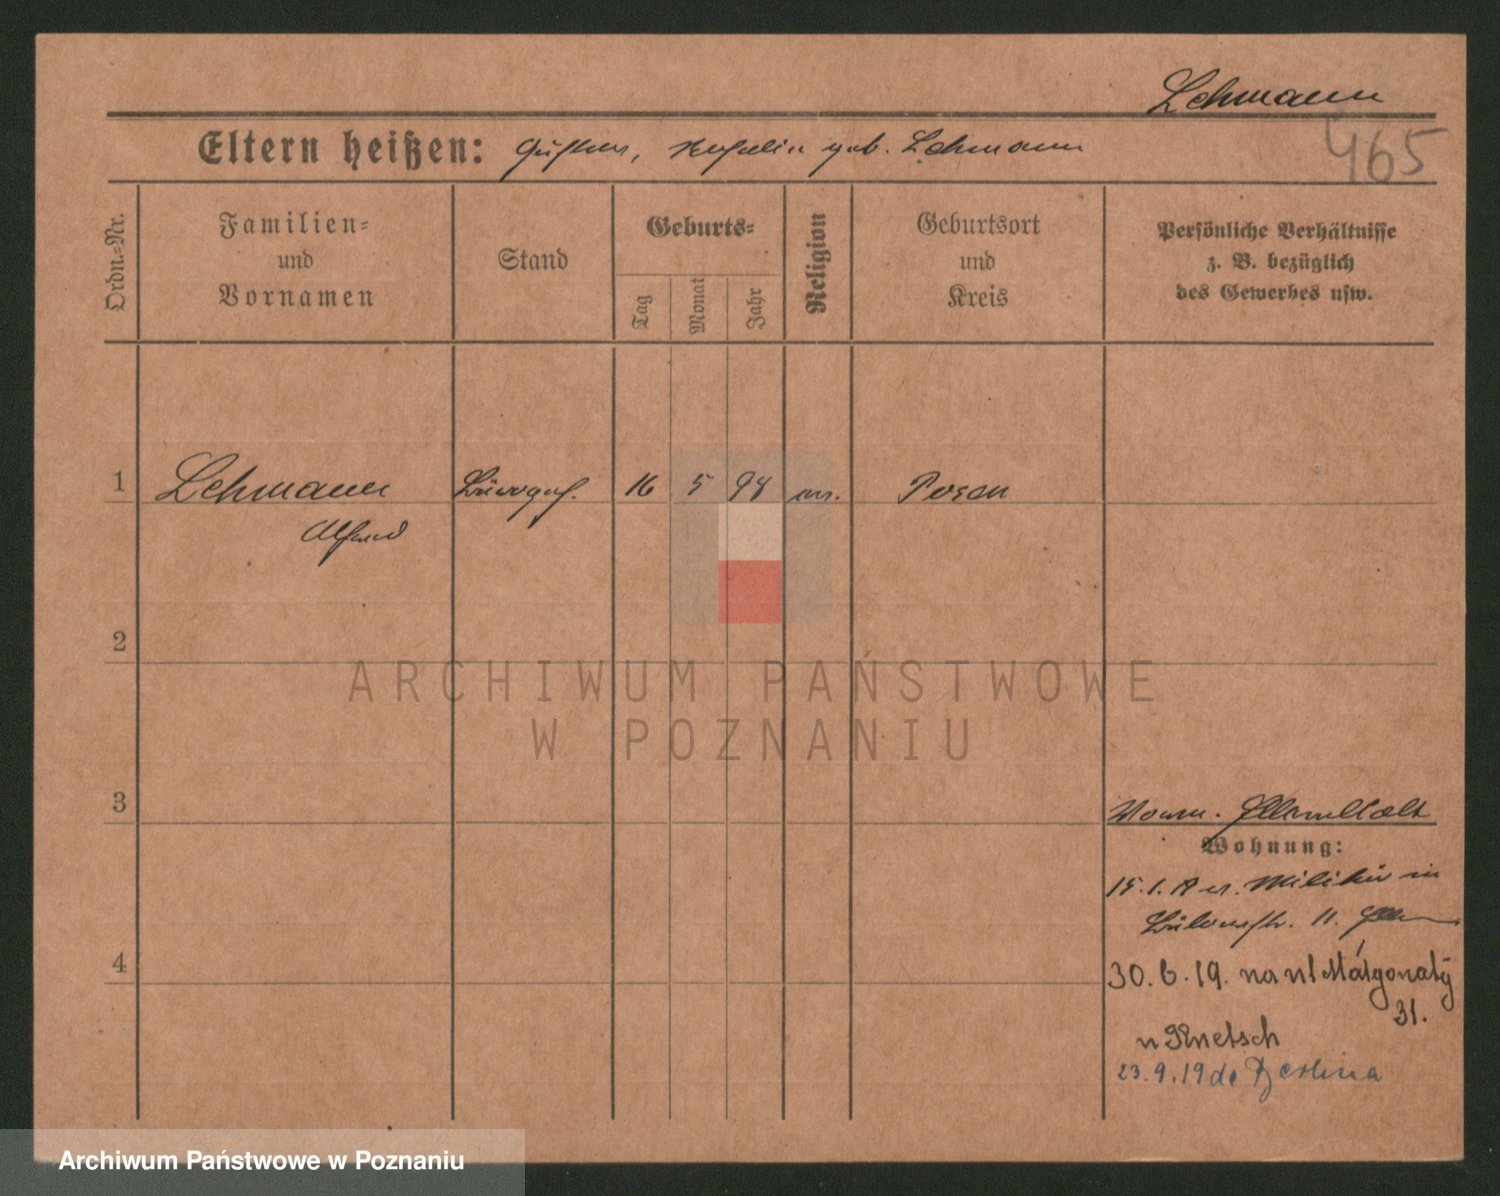 Lehmann
465
Eltern heißen: Gustav, geb. Lehmann
Ordn.=Nr.
Familien=
und
Vornamen
Stand
Geburts=
Tag
Monat
Jahr
Religion
Geburtsort
und
Kreis
Persönliche Verhältnisse
z. B. bezüglich
des Gewerbes usw.
1 Lehmann Bürogeh. 16 5 98 ev. Posen
Alfred
2
ARCHIWUM PAŃSTWOWE
W POZNANIU
3
Wohnung:
15.1.19 v. Militär in
11.
4
30.6.19. na ul Małgorzaty
31.
u Knetsch
23.9.19 do Berlina
Archiwum Państwowe w Poznaniu